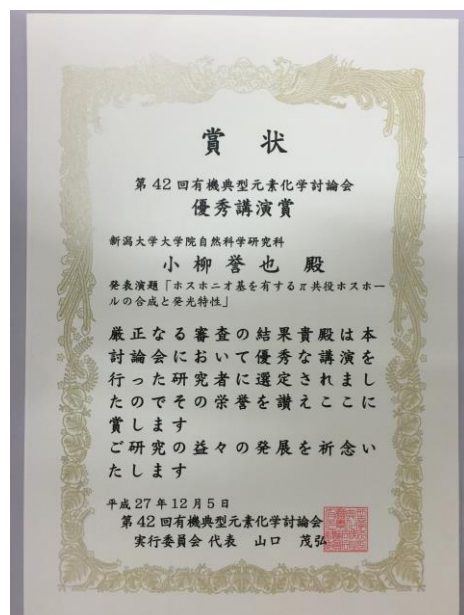 賞状
第42回有機典型元素化学討論会
優秀講演賞
新潟大学大学院自然科学研究科
小柳誉也 殿
発表演題「ホスホニオ基を有するπ共役ホスホー
ルの合成と発光特性」
厳正なる審査の結果貴殿は本
討論会において優秀な講演を
行った研究者に選定されまし
たのでその栄誉を讃えここに
賞します
ご研究の益々の発展を祈念い
たします
平成27年12月5日
第42回有機典型元素化学討論会
実行委員会 代表 山口 茂弘